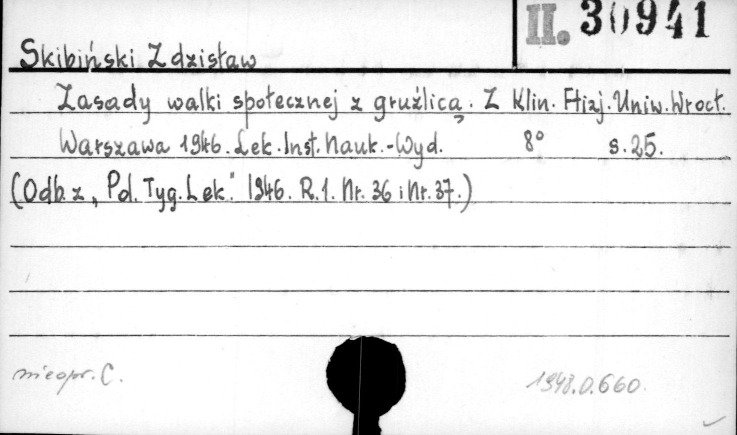 II. 30941
Skibiński Zdzisław
Zasady walki społecznej z gruźlicą. Z Klin. Ftizj. Uniw. Wrocł.
Warszawa 1946. Lek. Inst. Nauk.-Wyd. 8° s. 25.
(Odb. z „Pol. Tyg. Lek." 1946. R. 1. Nr. 36 i Nr. 37.)
nieopr. C. 1948.0.660.